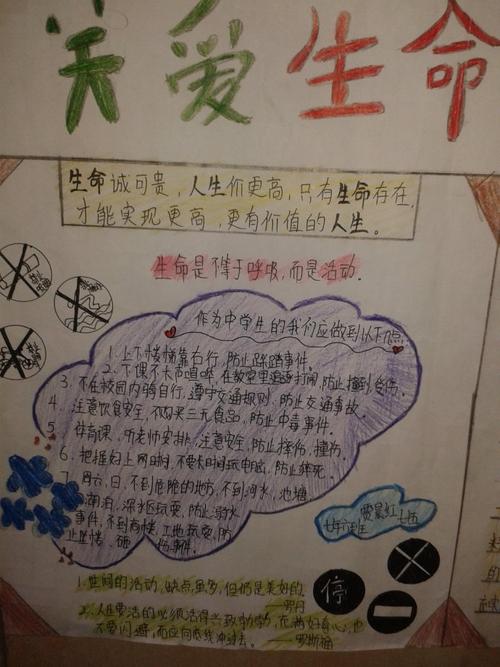 关爱生命
生命诚可贵，人生价更高，只有生命存在，
才能实现更高，更有价值的人生。
生命是不等于呼吸，而是活动。
作为中学生的我们应做到以下几点
1.上下楼梯靠右行，防止踩踏事件。
2.下课不大声喧哗，在教室里追逐打闹，防止撞到受伤。
3.不在校园内骑自行，遵守交通规则，防止交通事故。
4.注意饮食安全，不购买三无食品，防止中毒事件。
5.体育课，听老师安排，注意安全，防止摔伤，撞伤。
6.把握好上网时间，不要长时间玩电脑，防止猝死。
7.周六、日，不到危险的地方，不到河水，池塘
湖泊，深水区玩耍，防止溺水
事件，不到高楼，工地玩耍，防
止坠楼、砸伤事件。
七六班
停
1.世间的活动，缺点虽多，但仍是美好的。
——罗丹
2.人生要活的
不要闪避，而应向底线冲过去。——罗斯福